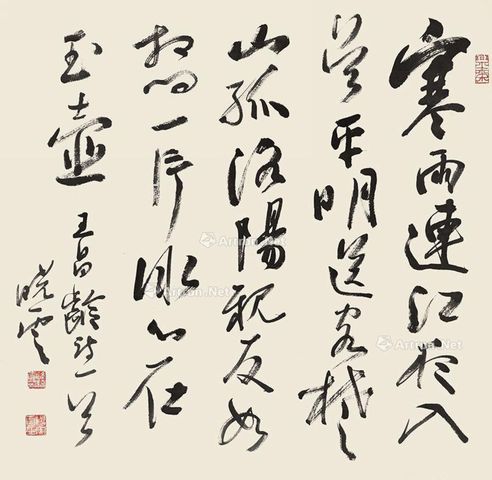 寒雨連江夜入
吴平明送客楚
山孤洛陽親友如
相問一片冰心在
玉壺
王昌齡詩一首
Artron.Net
Artron.Net
Artron.Net